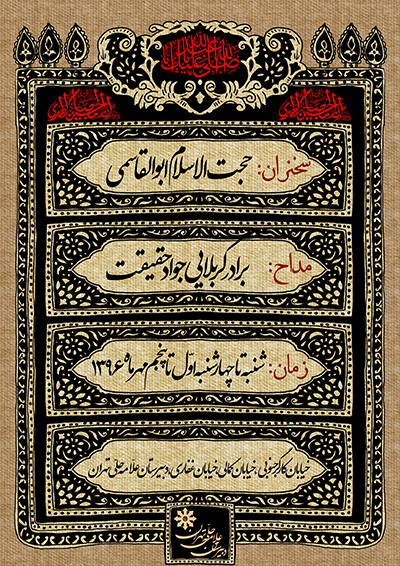 سخنران: حجت الاسلام ابوالقاسمی
مداح: برادر کربلایی جواد حقیقت
زمان: شنبه تا چهارشنبه اول تا پنجم مهرماه ۱۳۹۶
خیابان کارگر جنوبی، خیابان کمالی، خیابان غفاری، دبیرستان علامه حلی تهران